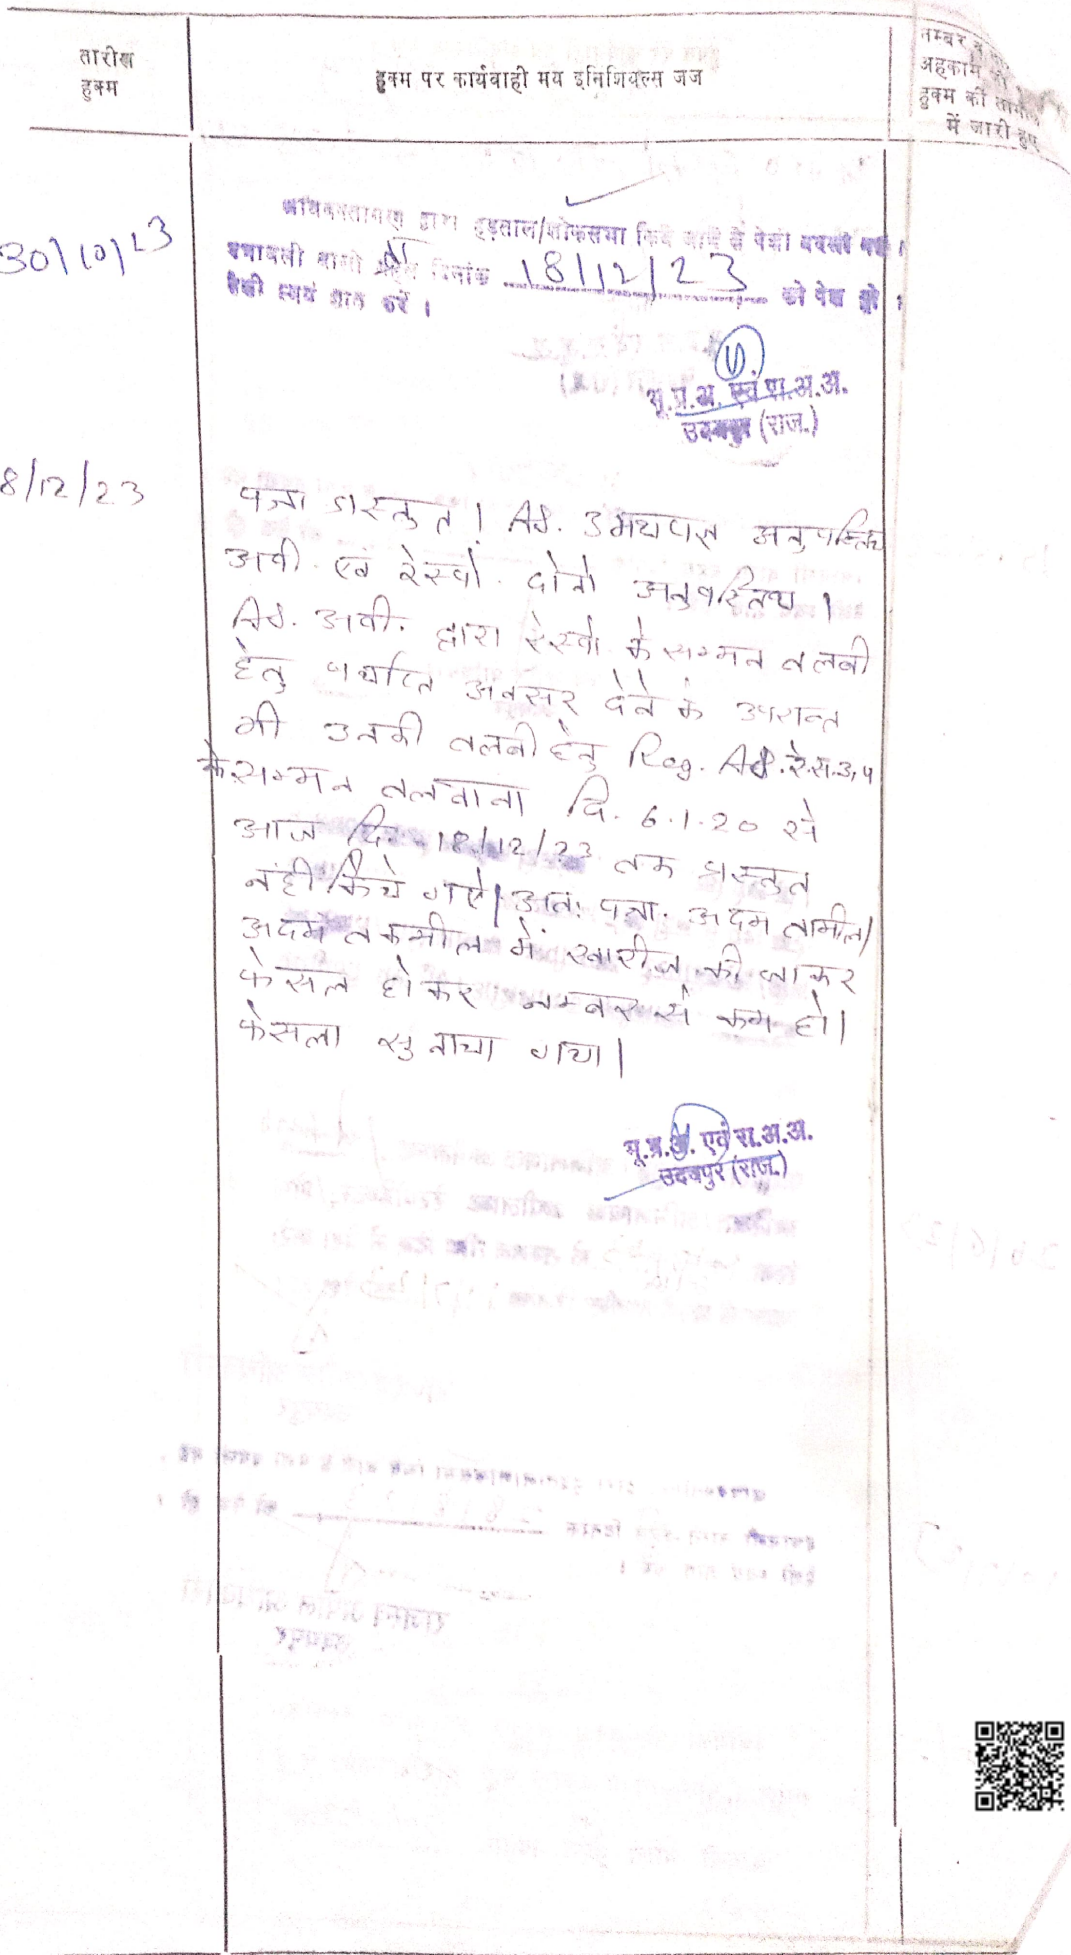 तारीख
हुक्म
हुक्म पर कार्यवाही मय इनिशियल्स जज
नम्बर
अहकाम
हुक्म की
में जारी हुए
30/10/23
अधिवक्तागण द्वारा हड़ताल/लोकसभा किये जाने से पेशी बदली गई ।
पत्रावली वास्ते दिनांक 18/12/23 को पेश हो ।
पेशी स्वयं ज्ञात करें ।
भू.प्र.अ. एवं रा.अ.अ.
उदयपुर (राज.)
8/12/23
पत्रा प्रस्तुत । Ad. उभयपक्ष अनुपस्थित
अपी. एवं रेस्पो. दोनो अनुपस्थित ।
Ad. अपी. द्वारा रेस्पो के सम्मन तलबी
हेतु पर्याप्त अवसर देने के उपरान्त
भी उनकी तलबी हेतु Reg. Ad. रे.स. 3,4
के सम्मन तलवाना दि. 6.1.20 से
आज दि. 18/12/23 तक प्रस्तुत
नही किये गऐ। अतः पत्रा. अदम तामील/
अदम तकमील में खारीज की जाकर
फेसल होकर नम्बर से कम हो।
फेसला सुनाया गया।
भू.प्र.अ. एवं रा.अ.अ.
उदयपुर (राज.)